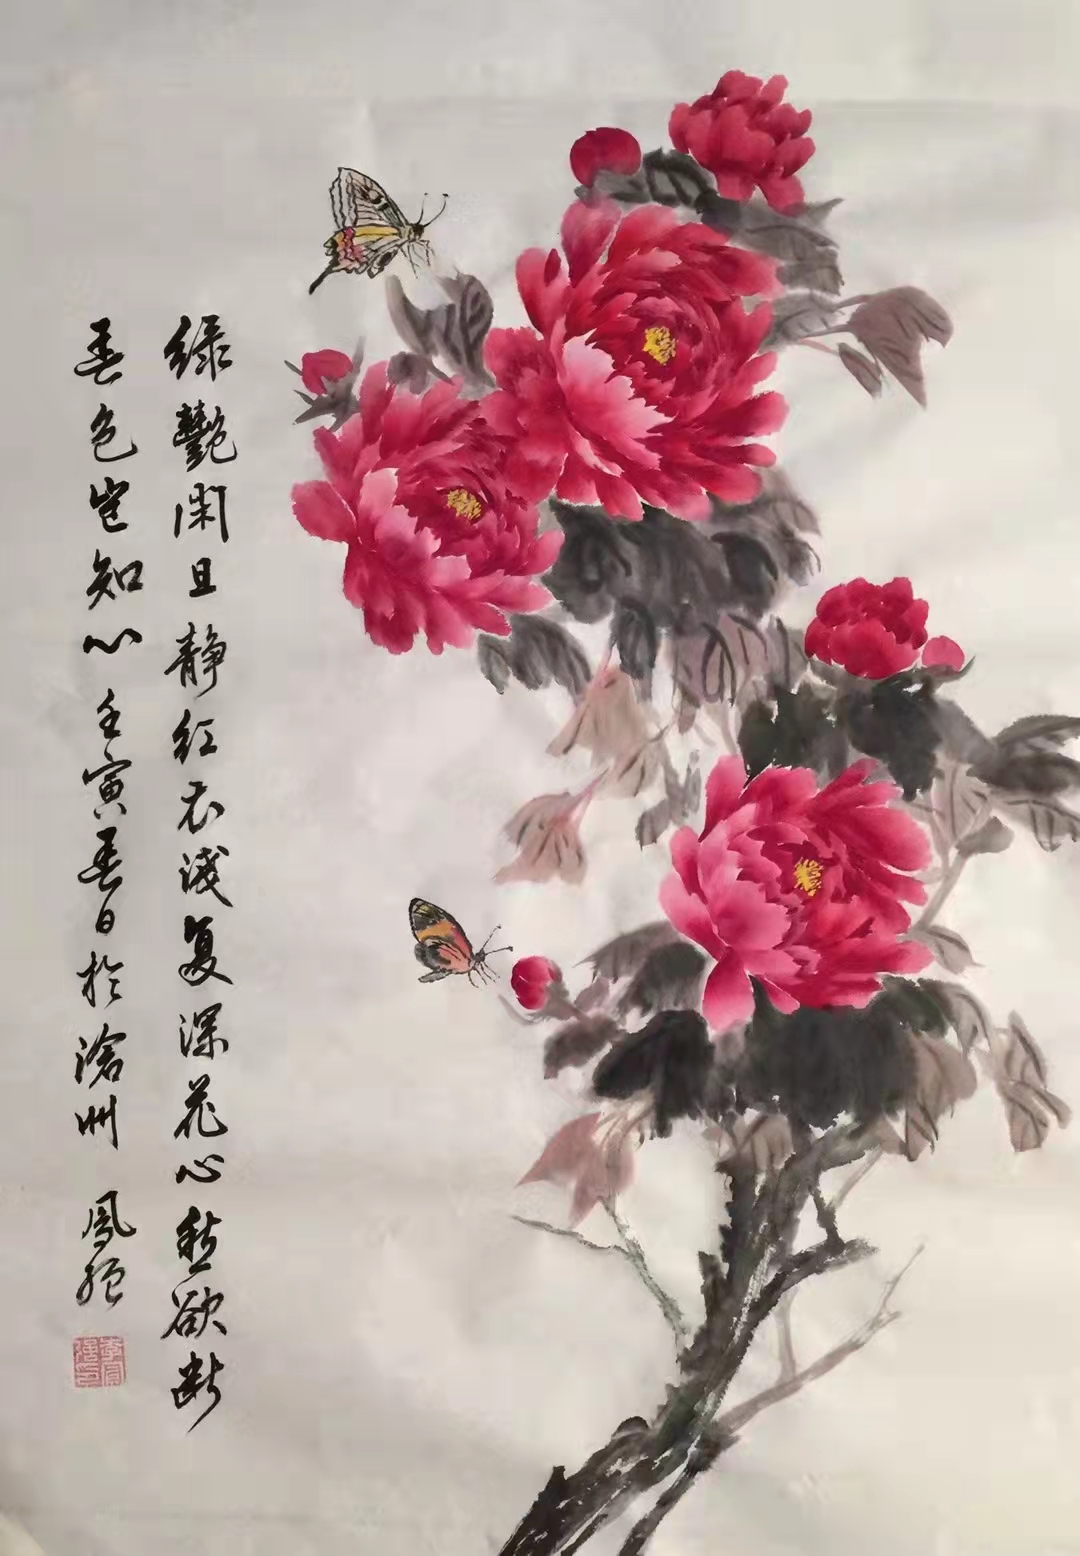 绿艷闲且静红衣浅复深花心愁欲断
春色岂知心壬寅春日於滄州 鳳强